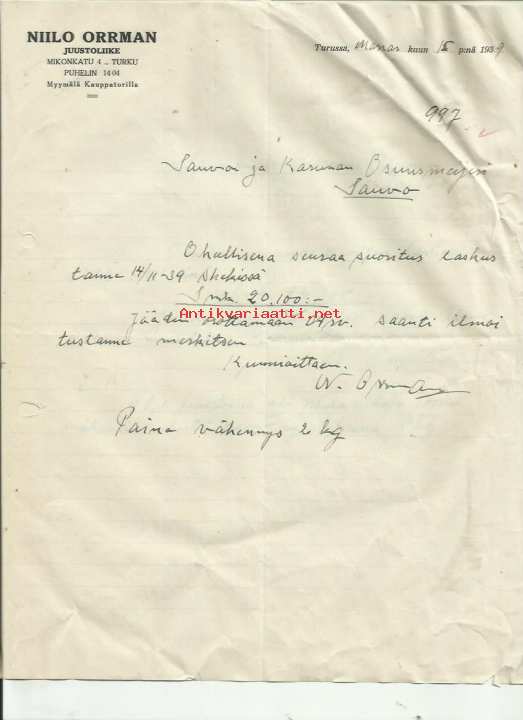 NIILO ORRMAN
JUUSTOLIIKE
MIKONKATU 4 .. TURKU
PUHELIN 14 04
Myymälä Kauppatorilla
Turussa, Marras kuun 15 p:nä 1939
997
Sauvon ja Karunan Osuusmeijeri
Sauvo
Ohallisena seuraa suoritus laskus
tanne 14/11-39 shekissä
Smk. 20,100:-
Antikvariaatti.net
Jääden odottamaan saanti ilmoi
tustanne merkitsen
Kunnioittaen.
N. Orrman
Paino vähennys 2 kg